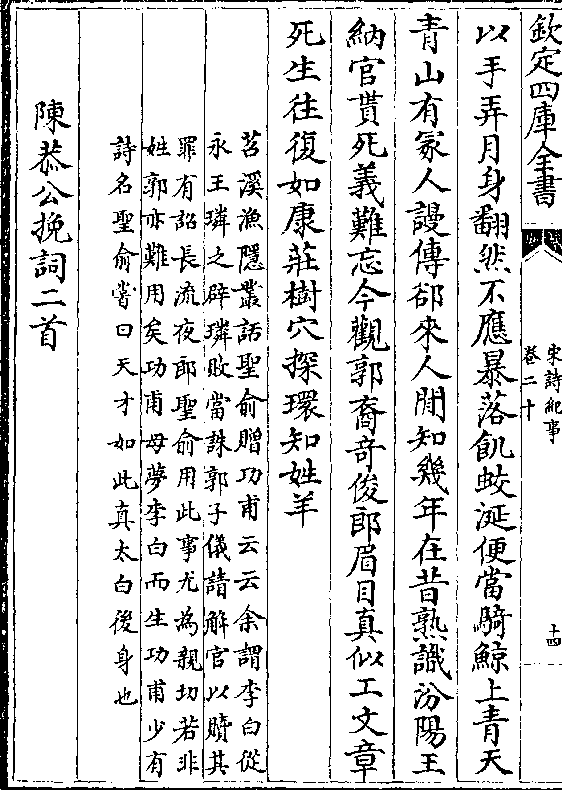 欽定四庫全書
宋詩紀事
卷二十
十四
以手弄月身翻然不應暴落飢蛟涎便當騎鯨上青天
青山有冢人謾傳卻來人間知幾年在昔熟識汾陽王
納官貰死義難忘今觀郭裔奇俊郎眉目真似工文章
死生往復如康莊樹穴探環知姓羊
苕溪漁隱叢話聖俞贈功甫云云余謂李白從
永王璘之辟璘敗當誅郭子儀請解官以贖其
罪有詔長流夜郎聖俞用此事尤為親切若非
姓郭亦難用矣功甫母夢李白而生功甫少有
詩名聖俞嘗曰天才如此真太白後身也
陳恭公挽詞二首